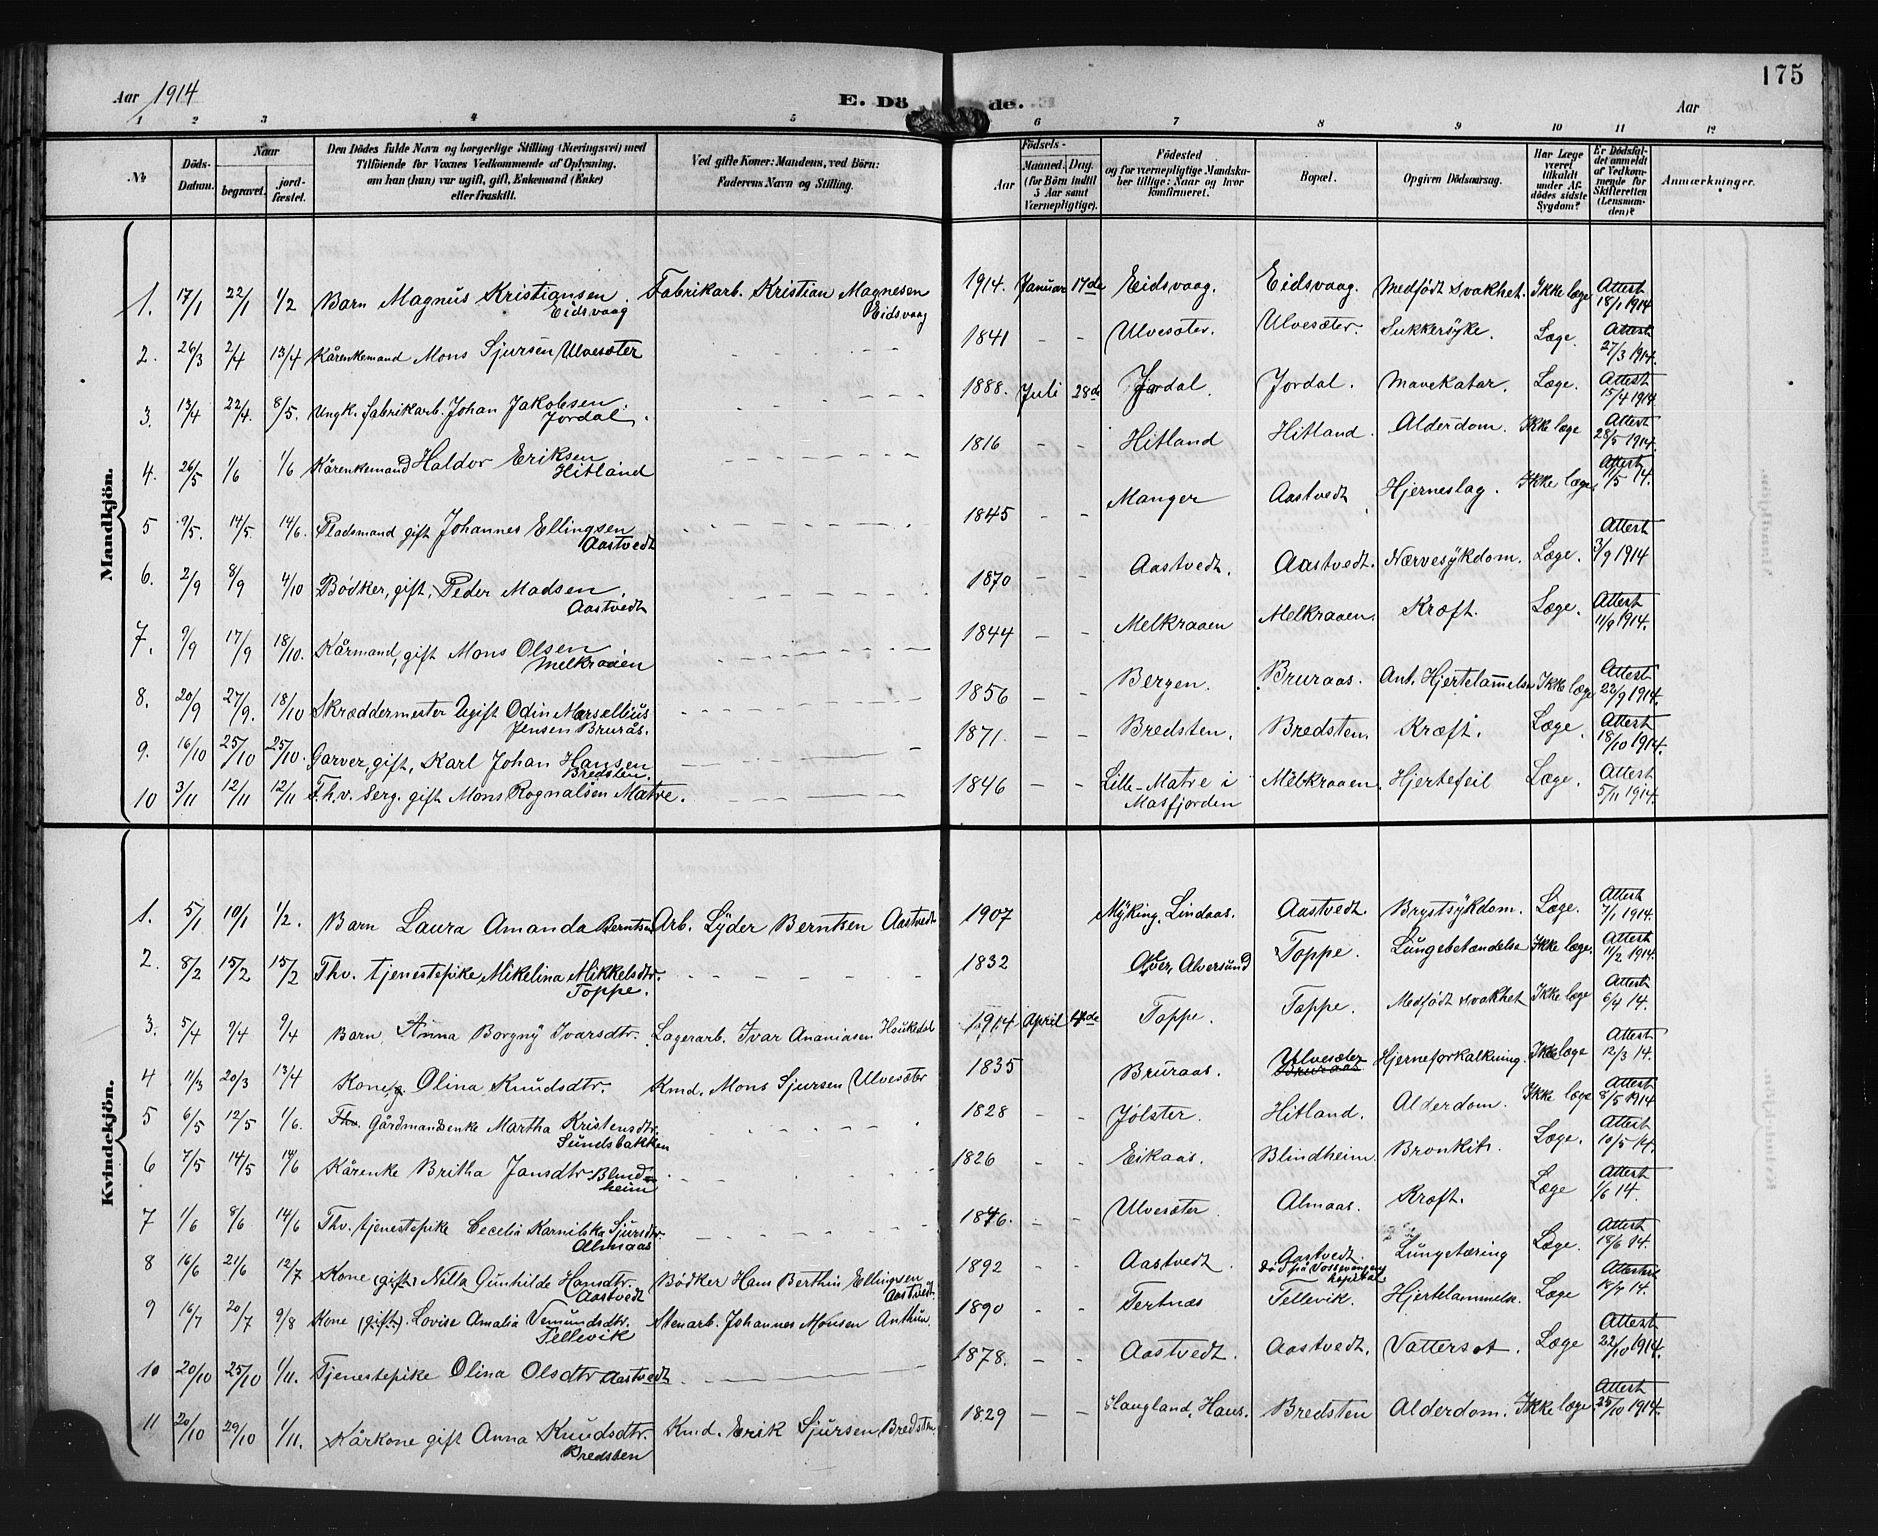 175
Aar 1914
E. Döde.
Aar
1 2 3 4 5 6 7 8 9 10 11 12
No
Döds-Datum.
Naar
begravet.
jordfæstet.
Den Dödes fulde Navn og borgerlige Stilling (Næringsvei) med
Tilföiende for Voxnes Vedkommende af Oplysning,
om han (hun) var ugift, gift, Enkemand (Enke)
eller fraskilt.
Ved gifte Koner: Mandens, ved Börn:
Faderens Navn og Stilling.
Födsels-
Aar
Maaned. Dag.
(for Börn indtil 5 Aar samt Værnepligtige).
Födested
og for værnepligtige Mandskaber tillige: Naar og hvor konfirmeret.
Bopæl.
Opgiven Dödsaarsag.
Har Læge været tilkaldt under Afdödes sidste Sygdom?
Er Dödsfaldet anmeldt af Vedkommende for Skifteretten (Lensmanden)?
Anmærkninger.
Mandkjön.
1. 17/1 22/1 1/2 Barn Magnus Kristiansen Eidsvaag Fabrikarb. Kristian Magnesen Eidsvaag 1914. Januar 17de Eidsvaag. Eidsvaag. Medfödt svakhet. Ikke læge Attest 18/1 1914
2. 26/3 2/4 13/4 Kårenkemand Mons Sjursen Ulvesæter 1841 Ulvesæter. Ulvesæter. Sukkersyke. Læge. Attest 27/3 1914.
3. 13/4 22/4. 8/5. Ungk. fabrikarb. Johan Jakobsen Jordal. 1888. Juli 28de Jordal. Jordal. Mavekatar. Læge. Attest 15/4 1914.
4. 26/5 1/6 1/6 Kårenkemand Haldor Eriksen Hitland 1816 Hitland Hitland. Alderdom. Ikke læge Attest 28/5 1914.
5 9/5. 14/5. 14/6. Pladsmand gift Johannes Ellingsen Aastvedt 1845 Manger Aastvedt Hjerneslag. Ikke læge Attest 11/5 14.
6. 2/9 8/9 4/10 Bödker, gift, Peder Madsen. Aastvedt 1870 Aastvedt. Aastvedt. Nærvesykdom. Læge. Attest 3/9 1914
7. 9/9 17/9 18/10. Kårmand, gift Mons Olsen Melkraaen 1844 Melkraaen Melkraaen. Kræft. Læge. Attest 11/9 1914.
8. 20/9 27/9. 18/10 Skræddermester Ugift Odin Marsellius Jensen Brurås. 1856 Bergen. Bruraas. Ant. Hjertelammelse Ikke læge Attest 22/9 1914.
9. 16/10 25/10 25/10. Garver, gift, Karl Johan Hansen Bredsten. 1871. Bredsten. Bredsten. Kræft. Læge. Attest 18/10 1914.
10 3/11 12/11 12/11 F.h.v. Serg. gift Mons Rognalsen Matre. 1846 Lille-Matre i Masfjorden Melkraaen. Hjertefeil Læge. Attest 5/11 1914.
Kvindekjön.
1. 5/1 10/1 1/2. Barn Laura Amanda Berntsen Arb. Lyder Berntsen Aastvedt 1907 Myking. Lindaas. Aastvedt. Brystsykdom. Læge. Attest 7/1 1914.
2. 8/2 15/2 15/2 Fhv. tjenestepike Mikelina Mikkelsdtr. Toppe. 1832 Alver, Alversund Toppe. Lungebetændelse Ikke læge. Attest 11/2 1914.
3. 5/4 9/4 9/4 Barn Anna Borgny Ivarsdtr. Lagerarb. Ivar Ananiasen 1914 April Toppe. Toppe. Medfödt svakhet Ikke læge Attest 6/4 14.
4 11/3 20/3 13/4 Kone, g. Olina Knudsdtr. Kmd. Mons Sjursen Ulvesæter 1835 Bruraas. Ulvesæter Bruraas Hjerneforkalkning. Ikke læge Attest 12/3 14.
5 6/5 12/5 1/6. Fhv. Gårdmandsenke Martha Kristensdtr. Sundsbakken 1828 Jölster. Hitland. Alderdom. Ikke læge Attest 8/5 1914
6 7/5 14/5 14/6 Kårenke Britha Jansdtr Blindheim 1826 Eikaas. Blindheim. Bronkit. Læge. Attest 10/5 14.
7 1/6 8/6 14/6 Fhv. tjenestepike Cecelia Karnilska Sjursdtr. Almaas 1846. Ulvesæter Almaas. Kræft. Læge Attest 1/6 14.
8 16/6 21/6 12/7 Kone (gift) Nilla Gunhilde Hansdtr. Aastvedt Bödker Hans Berthin Ellingsen Aastvedt. 1892 Aastvedt. Aastvedt. Död på Vossevangen Lungetæring Læge. Attest 18/6 14.
9 16/7 20/7 9/8 Kone (gift). Lovise Amalia Vemundsdtr. Tellevik Stenarb. Johannes Monsen Anthun. 1890 Tertnæs Tellevik. Hjertelammelse. Læge Attest 18/7 14.
10 20/10 25/10 1/11. Tjenestepike Olina Olsdtr Aastvedt 1878. Aastvedt. Aastvedt. Vattersot. Læge Attest 22/10 1914.
11 20/10 29/10 1/11. Kårkone gift Anna Knudsdtr. Bredsten Kmd. Erik Sjursen Bredsten 1829 Haugland, Haus. Bredsten Alderdom. Ikke læge Attest 25/10 1914.